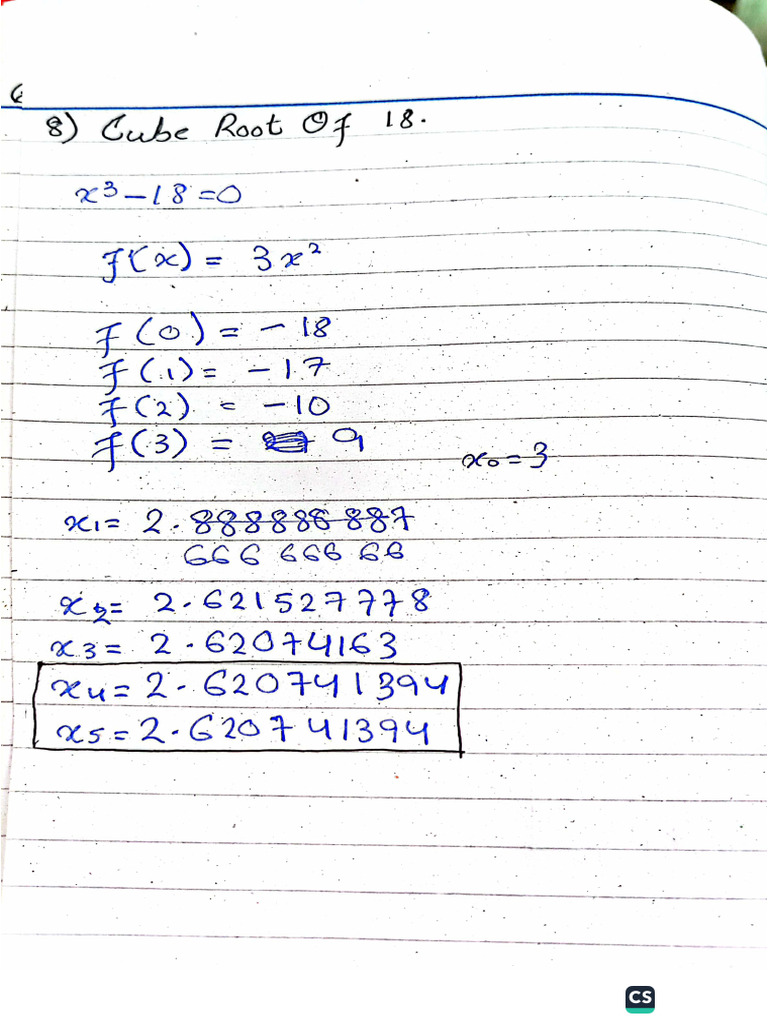 8) Cube Root Of 18.
x³ – 18 = 0
f'(x) = 3x²
f(0) = – 18
f(1) = – 17
f(2) = – 10
f(3) = 9
x₀ = 3
x₁ = 2.888888887
666 666 66
x₂ = 2.621527778
x₃ = 2.62074163
x₄ = 2.620741394
x₅ = 2.620741394
CS